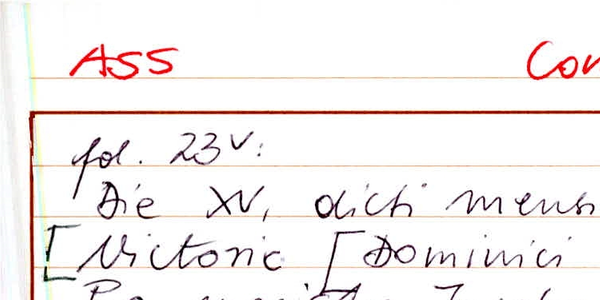 ASS Con
fol. 23v:
Die XV, dicti mens
[Victorie [Dominici